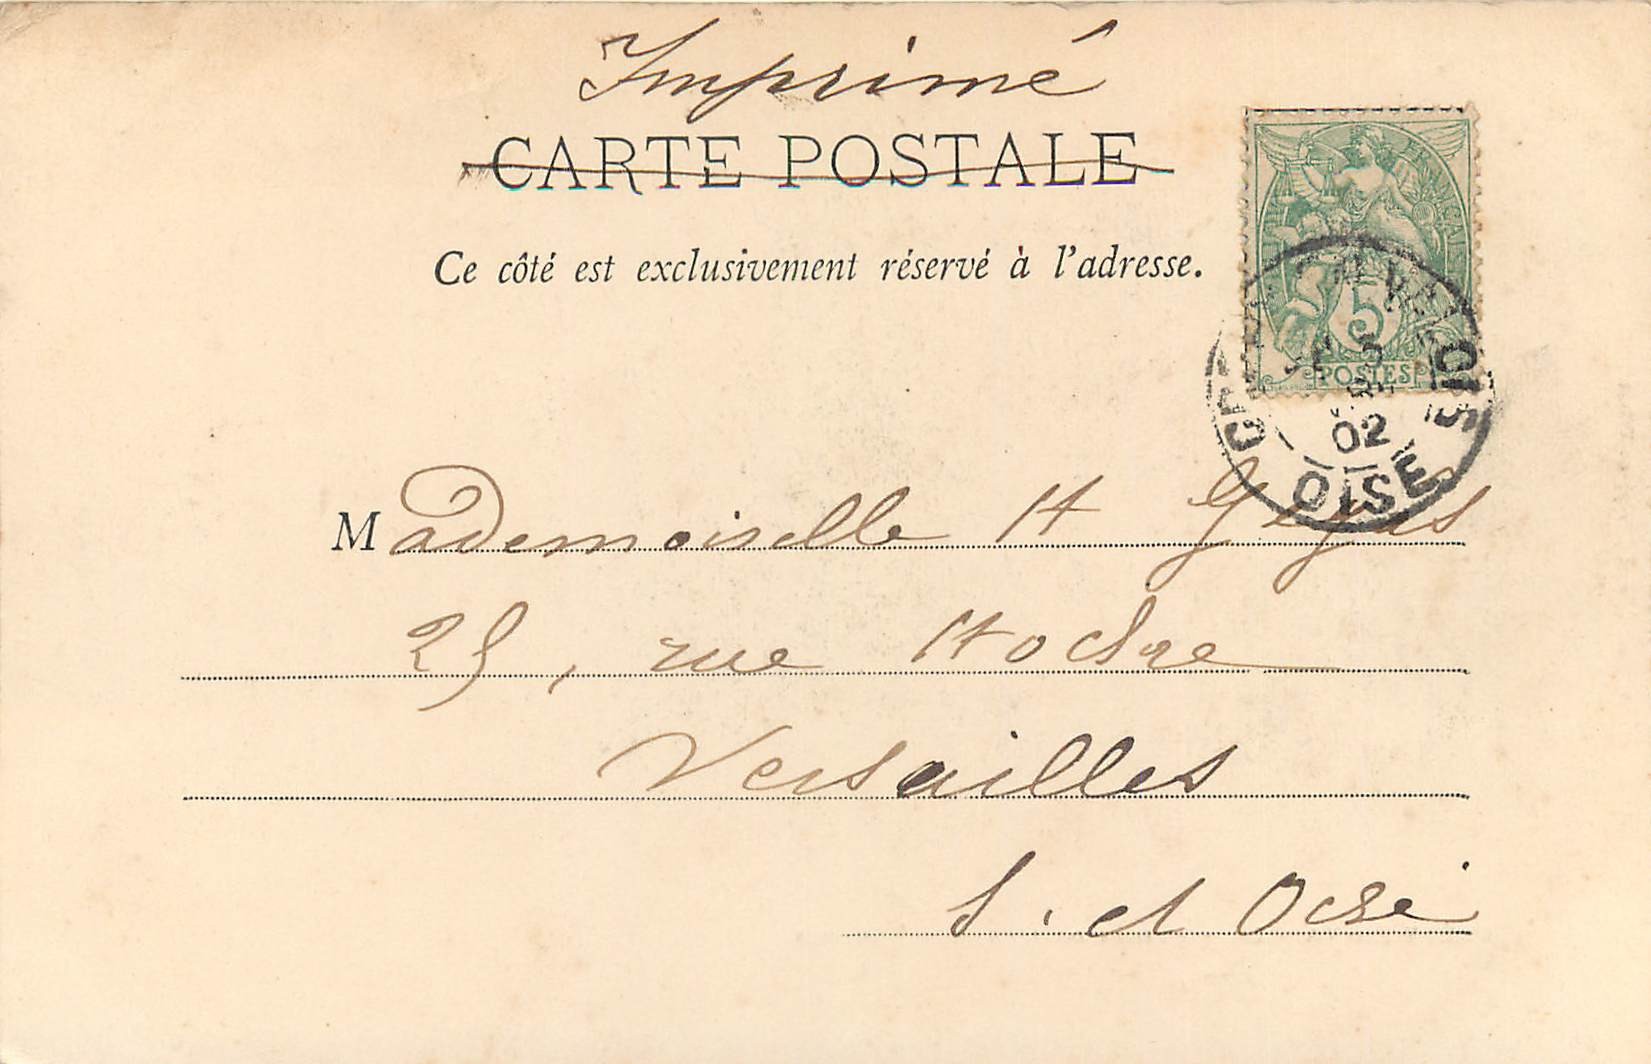 Imprimé
CARTE POSTALE
Ce côté est exclusivement réservé à l'adresse.
5
POSTES
02
OISE
Mademoiselle H
25, rue Hoche
Versailles
S. et Oise